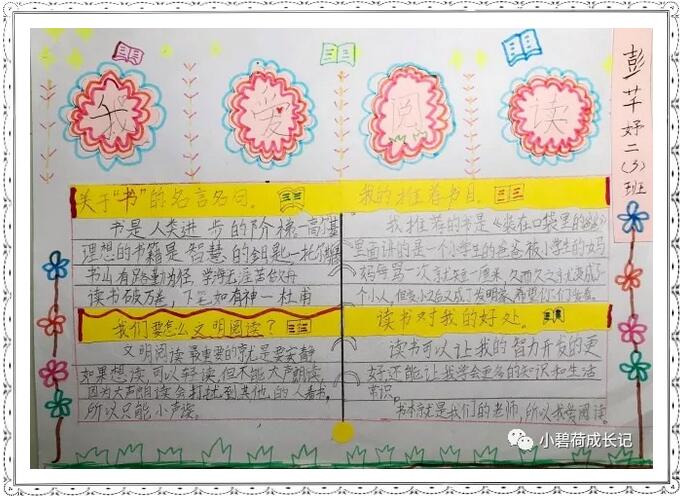 我 爱 阅 读
彭芊妤二(3)班
关于"书"的名言名句。
书是人类进步的阶梯—高尔基
理想的书籍是智慧的钥匙—托尔斯泰
书山有路勤为径，学海无涯苦作舟
读书破万卷，下笔如有神—杜甫
我的推荐书目。
我推荐的书是《装在口袋里的爸爸》
里面讲的是一个小学生的爸爸被小学生的妈
妈每骂一次就矮一厘米，久而久之就变成了
个小人。但变小之后又成了发明家，希望你们去看。
我们要怎么文明阅读？
文明阅读最重要的就是要安静
如果想读，可以轻读，但不能大声朗读，
因为大声朗读会打扰到其他的人看书。
所以只能小声读。
读书对我的好处。
读书可以让我的智力开发的更
好还能让我学会更多的知识和生活
常识。
书本就是我们的老师，所以我爱阅读。
小碧荷成长记